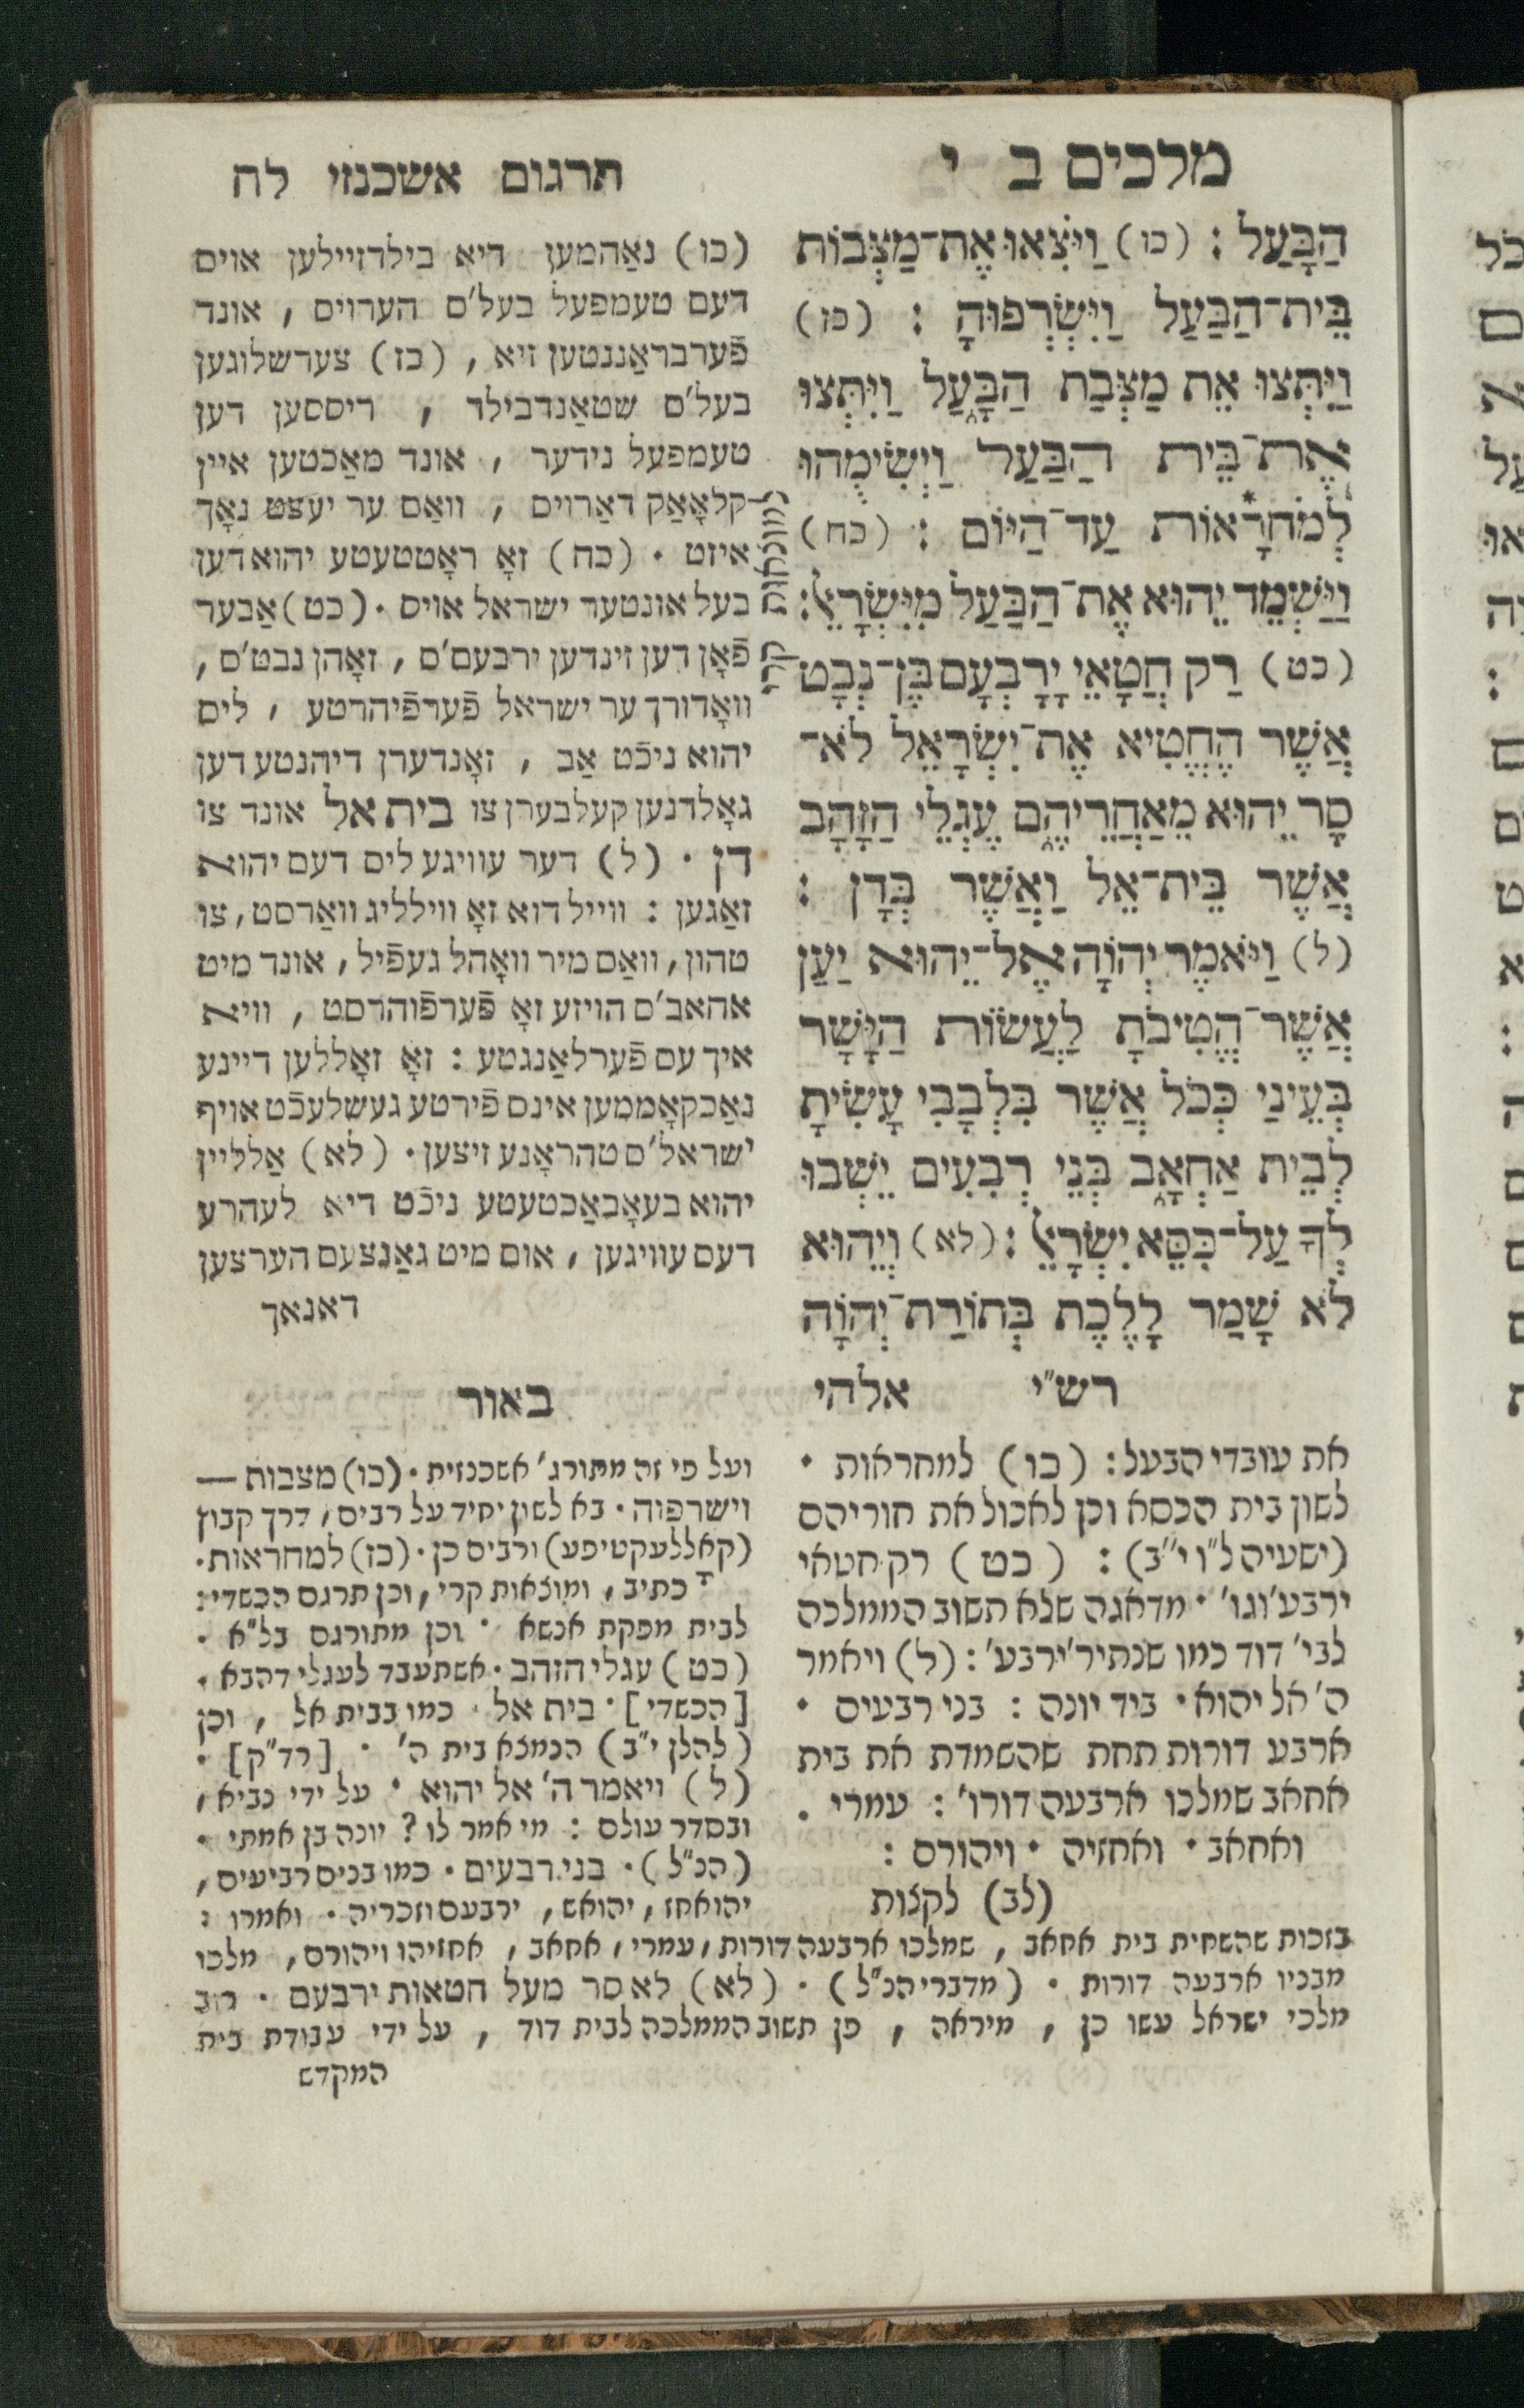 מלכים ב י
הַבָּעַל : (כו) וַיֹּצִאוּ אֶת־מַצְּבוֹת
בֵּית־הַבַּעַל וַיִּשְׂרְפוּהָ : (כז)
וַיִּתְּצוּ אֵת מַצְּבַת הַבָּעַל וַיִּתְּצוּ
אֶת־בֵּית הַבַּעַל וַיְשִׂימֻהוּ
לְמֹחֳרָאוֹת* עַד־הַיּוֹם : (כח)
וַיַּשְׁמֵד יֵהוּא אֶת־הַבַּעַל מִיִּשְׂרָאֵל :
(כט) רַק חֲטָאֵי יָרָבְעָם בֶּן־נְבָט
אֲשֶׁר הֶחֱטִיא אֶת־יִשְׂרָאֵל לֹא־
סָר יֵהוּא מֵאַחֲרֵיהֶם עֶגְלֵי הַזָּהָב
אֲשֶׁר בֵּית־אֵל וַאֲשֶׁר בְּדָן :
(ל) וַיֹּאמֶר יְהוָֹה אֶל־יֵהוּא יַעַן
אֲשֶׁר־הֱטִיבֹתָ לַעֲשׂוֹת הַיָּשָׁר
בְּעֵינַי כְּכֹל אֲשֶׁר בִּלְבָבִי עָשִׂיתָ
לְבֵית אַחְאָב בְּנֵי רְבִעִים יֵשְׁבוּ
לְךָ עַל־כִּסֵּא יִשְׂרָאֵל : (לא) וְיֵהוּא
לֹא שָׁמַר לָלֶכֶת בְּתוֹרַת־יְהוָֹה
אלהי
למוצאות קרי
תרגום אשכנזי לח
(כו) נאַהמען דיא בילדזיילען אויס
דעם טעמפעל בעל'ס הערויס , אונד
פֿערבראַננטען זיא , (כז) צערשלוגען
בעל'ס שטאַנדבילד , ריססען דען
טעמפעל נידער , אונד מאַכטען איין
קלאָאַק דאַרויס , וואַס ער יעצט נאָך
איזט . (כח) זאָ ראָטטעטע יהוא דען
בעל אונטער ישראל אויס . (כט) אַבער
פֿאָן דען זינדען ירבעם'ס , זאָהן נבט'ס ,
וואָדורך ער ישראל פֿערפֿיהרטע , ליס
יהוא ניכֿט אַב , זאָנדערן דיהנטע דען
גאָלדנען קעלבערן צו בית אל אונד צו
דן . (ל) דער עוויגע ליס דעם יהוא
זאַגען : ווייל דוא זאָ ווילליג וואַרסט, צו
טהון, וואַס מיר וואָהל געפֿיל, אונד מיט
אחאב'ס הויזע זאָ פֿערפֿוהרסט , וויא
איך עס פֿערלאַנגטע : זאָ זאָללען דיינע
נאַכקאָממען אינס פֿירטע געשלעכֿט אויף
ישראל'ס טהראָנע זיצען . (לא) אַלליין
יהוא בעאָבאַכטעטע ניכֿט דיא לעהרע
דעס עוויגען , אום מיט גאַנצעם הערצען
דאנאך
רש"י
את עובדי הבעל : (כו) למחראות .
לשון בית הכסא וכן לאכול את חוריהם
(ישעיה ל"ו י"ב) : (כט) רק חטאי
ירבע' וגו' . מדאגה שלא תשוב הממלכה
לבי' דוד כמו שנתיר' ירבע' : (ל) ויאמר
ה' אל יהוא . ביד יונה : בני רבעים .
ארבע דורות תחת שהשמדת את בית
אחאב שמלכו ארבעה דורו' : עמרי .
ואחאב . ואחזיה . ויהורם :
(לב) לקצות
באור
ועל פי זה מתורג' אשכנזית . (כו) מצבות —
וישרפוה . בא לשון יחיד על רבים , דרך קבוץ
(קאללעקטיפע) ורבים כן . (כז) למחראות .
כתיב , ומוצאות קרי , וכן תרגם הכשדי :
לבית מפקת אנשא . וכן מתורגם בל"א .
(כט) עגלי הזהב . אשתעבד לעגלי דהבא .
[הכשדי] . בית אל . כמו בבית אל , וכן
(להלן י"ב) הנמצא בית ה' . [רד"ק] .
(ל) ויאמר ה' אל יהוא . על ידי נביא ,
ובסדר עולם : מי אמר לו ? יונה בן אמתי .
(הנ"ל) . בני רבעים . כמו בנים רביעים ,
יהואחז , יהואש , ירבעם וזכריה . ואמרו :
בזכות שהשחית בית אחאב , שמלכו ארבעה דורות , עמרי , אחאב , אחזיהו ויהורם , מלכו
מבניו ארבעה דורות . (מדברי הנ"ל) . (לא) לא סר מעל חטאות ירבעם . רוב
מלכי ישראל עשו כן , מיראה , פן תשוב הממלכה לבית דוד , על ידי עבודת בית
המקדש